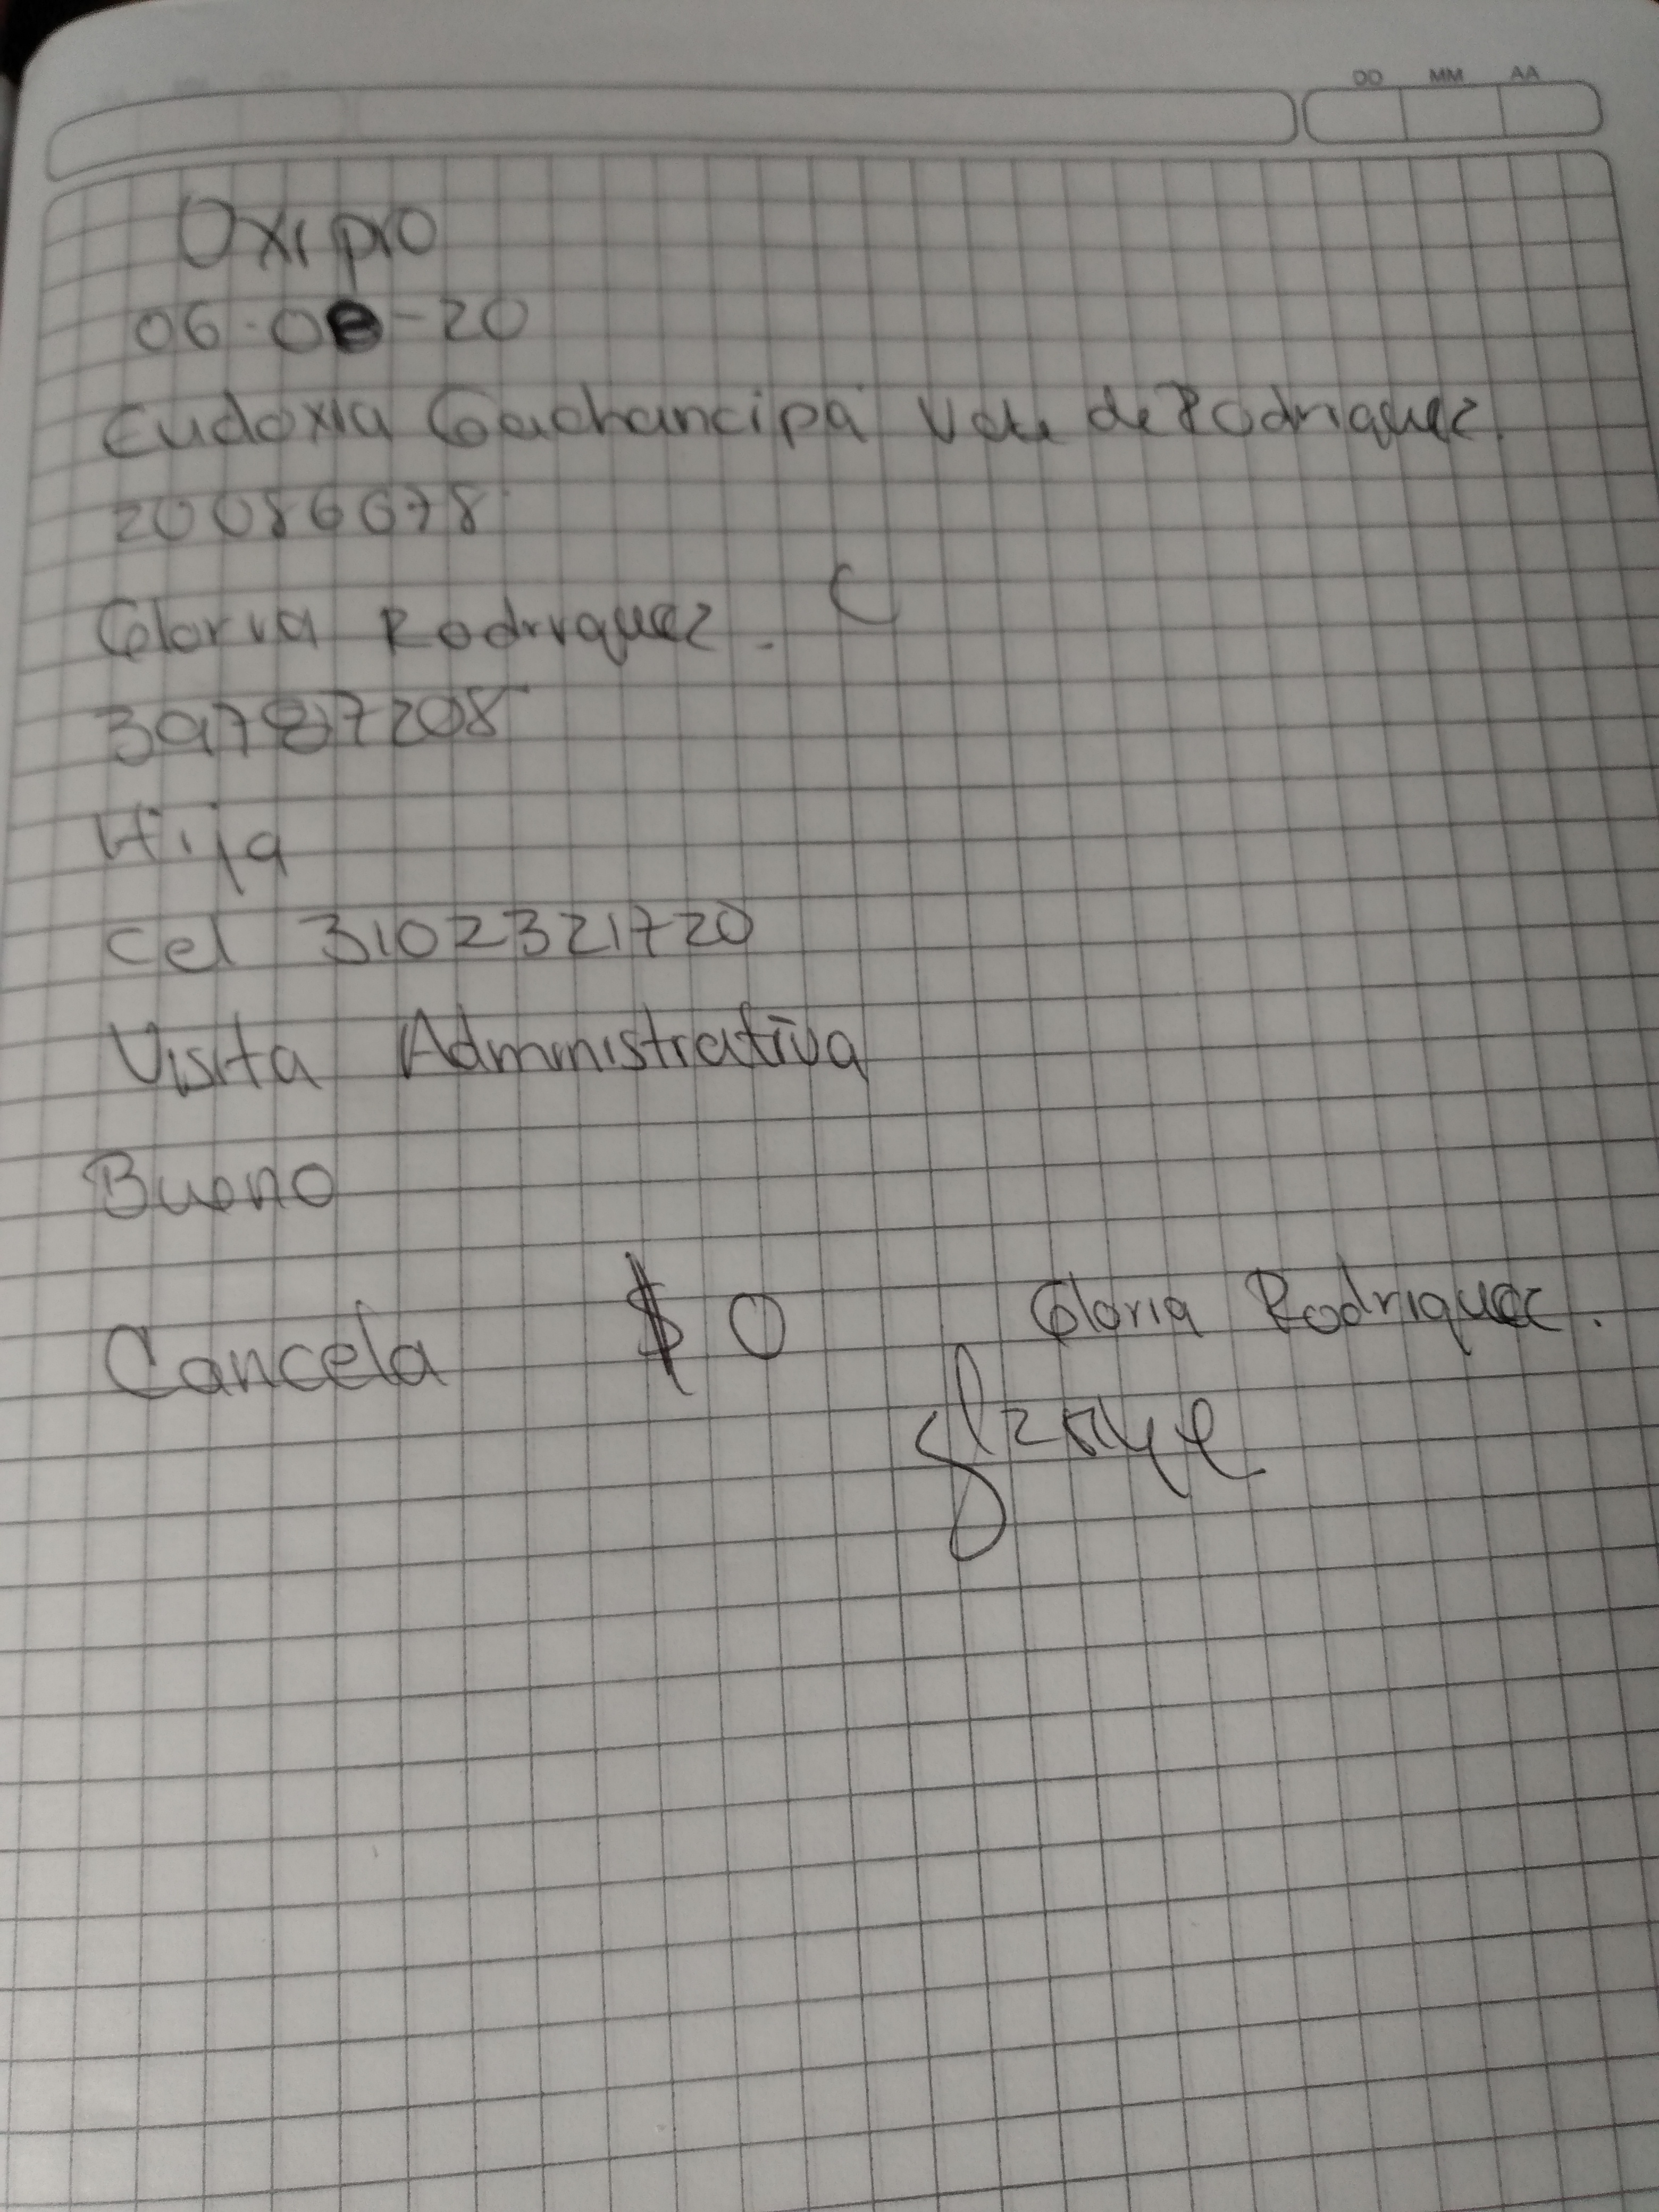 DD MM AA
Oxipro
06-08-20
Eudoxia Gachancipa Vda de Rodriguez
20086678
Gloria Rodriguez. C
39787208
Hija
Cel 3102321720
Visita Administrativa
Bueno
Cancela $ 0
Gloria Rodriguez.